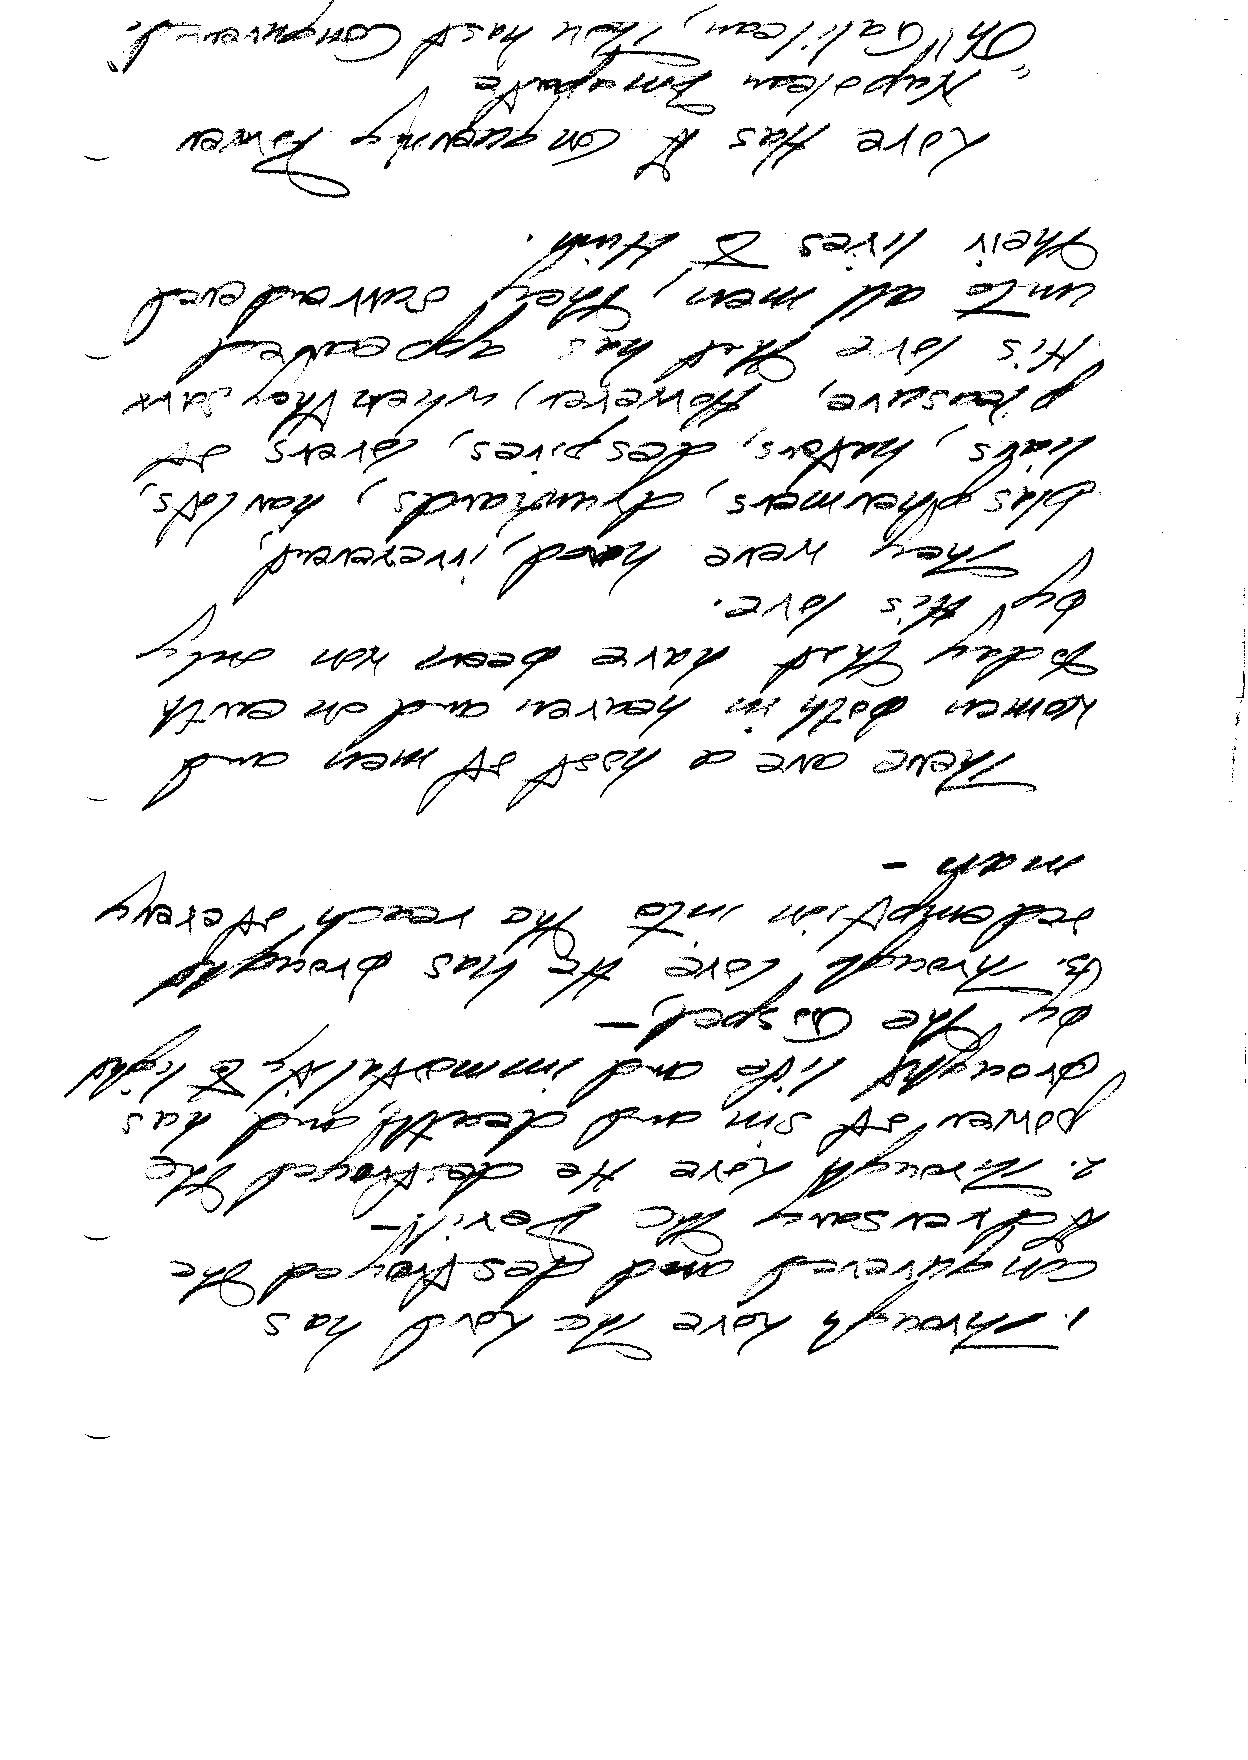 1. Through Love The Lord has
conquered and destroyed the
Adversary the Devil. -
2. Through Love He destroyed the
power of sin and death, and has
brought life and immortality to light
by the Gospel, -
3. Through Love He has brought
redemption into the reach of every
man -
There are a host of men and
women both in heaven and on earth
today that have been won only
by His love.
They were hard, irreverent,
blasphemers, drunkards, harlots,
liars, haters, despires, lovers of
pleasure, However, when they saw
His love that has appeared
unto all men, they surrendered
their lives to Him.
Love Has A Conquering Power
Napolean Bonaparte
"Oh! Galilean, Thou hast Conquered."